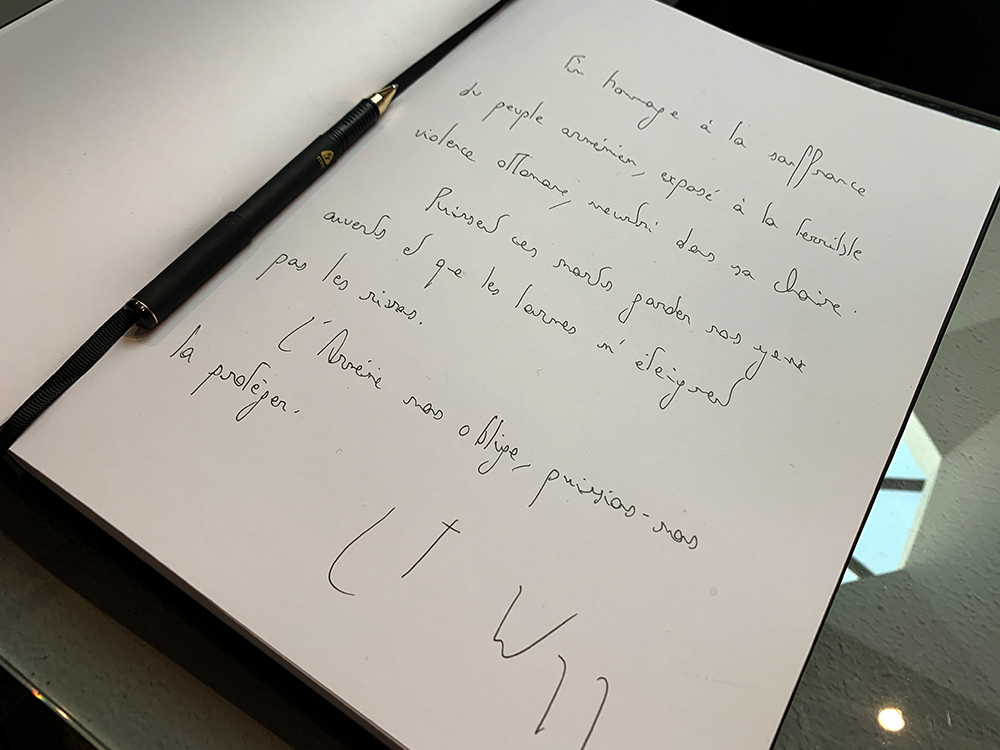 En hommage à la souffrance
du peuple arménien, exposé à la terrible
violence ottomane, meurtri dans sa chaire.
Puissent ces morts garder nos yeux
ouverts et que les larmes n'éteignent
pas les rires.
L'Arménie nous oblige, puissions-nous
la protéger.